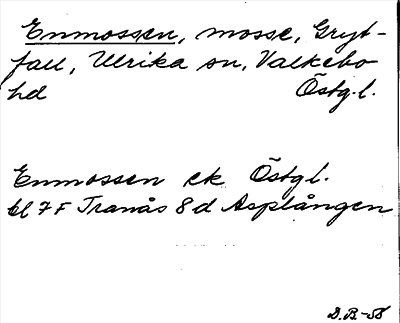 Enmossen, mosse, Gryt-
fall, Ulrika sn, Valkebo
hd Östg.l.
Enmossen ek Östgl.
bl 7F Tranås 8d Asplången
D.B.-58